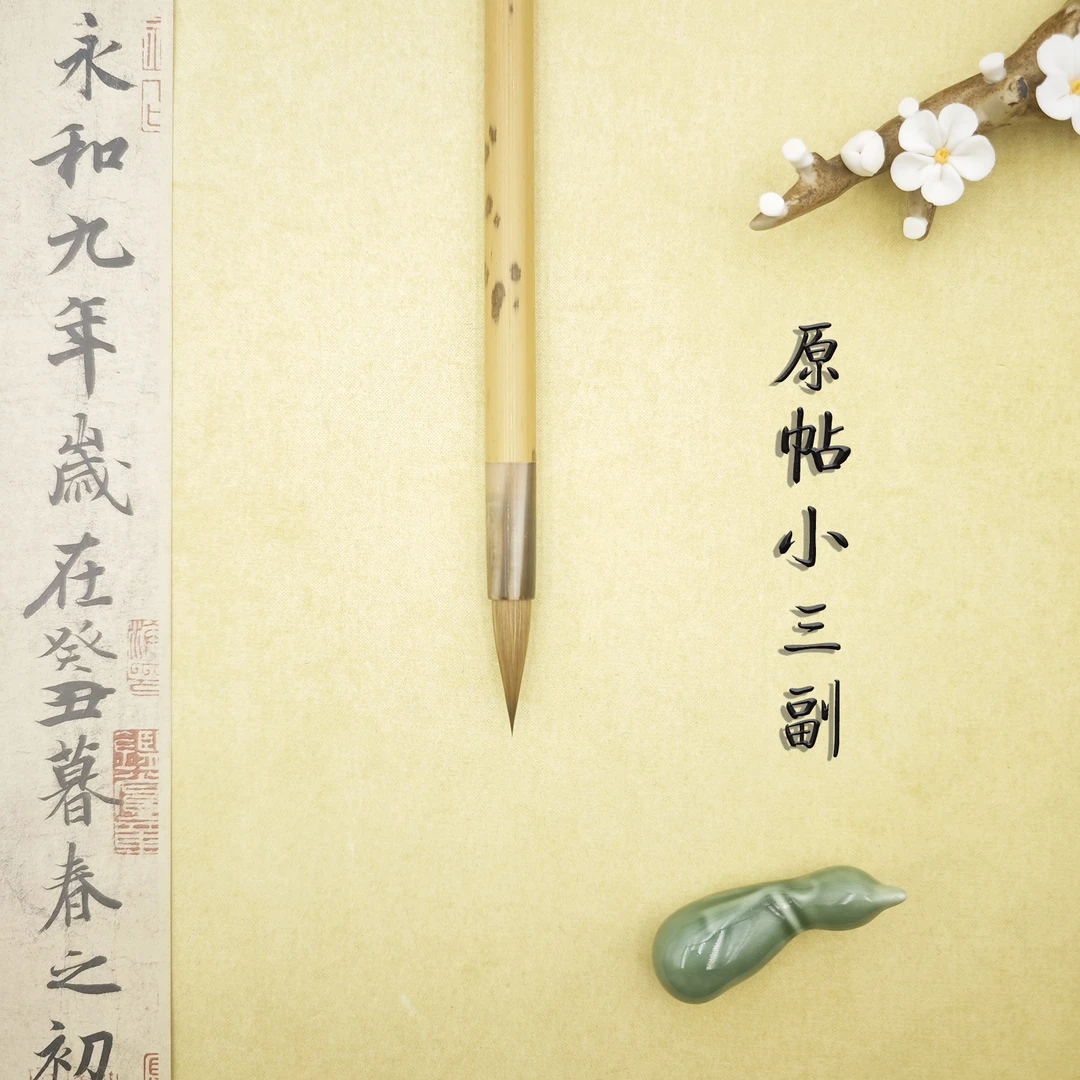 原帖小三副
永和九年歲在癸丑暮春之初